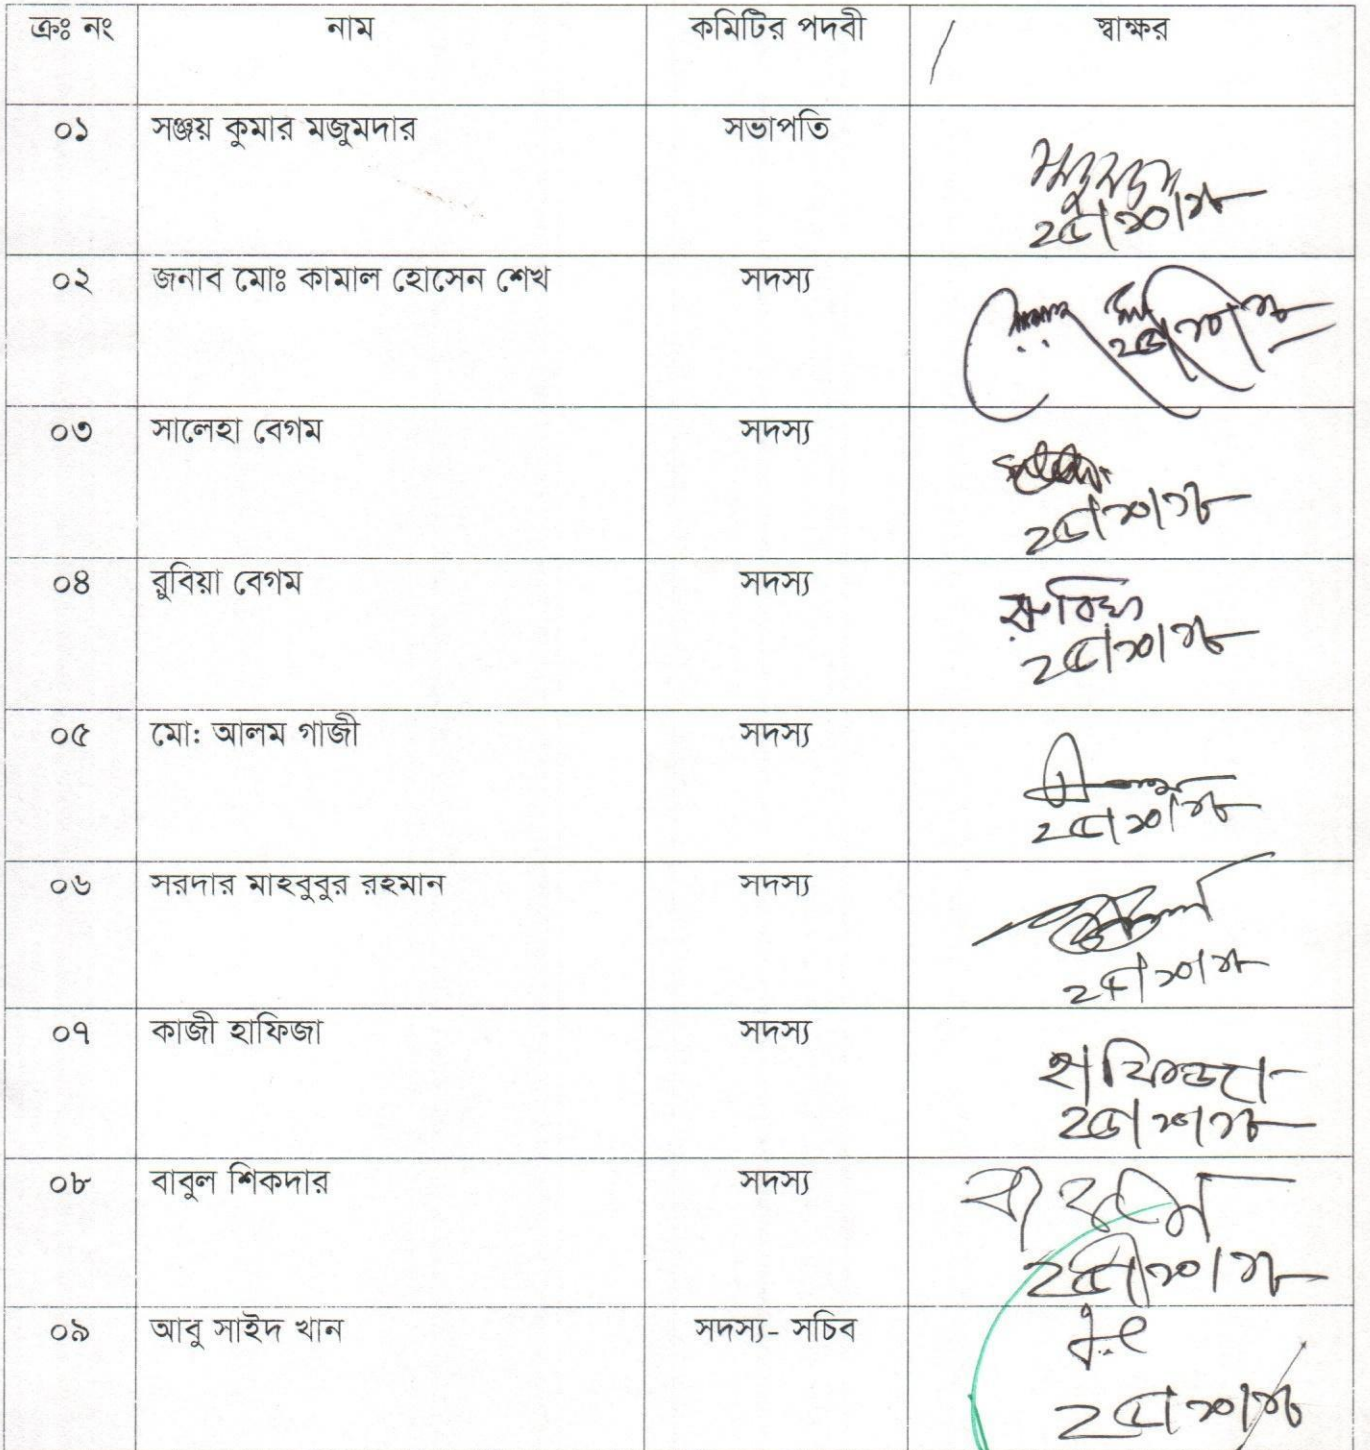 ক্রঃ নং নাম কমিটির পদবী স্বাক্ষর
০১ সঞ্জয় কুমার মজুমদার সভাপতি
২৫/১০/১৮
০২ জনাব মোঃ কামাল হোসেন শেখ সদস্য
২৫/১০/১৮
০৩ সালেহা বেগম সদস্য
২৫/১০/১৮
০৪ রুবিয়া বেগম সদস্য রুবিয়া
২৫/১০/১৮
০৫ মো: আলম গাজী সদস্য
২৫/১০/১৮
০৬ সরদার মাহবুবুর রহমান সদস্য
২৫/১০/১৮
০৭ কাজী হাফিজা সদস্য হাফিজা
২৫/১০/১৮
০৮ বাবুল শিকদার সদস্য বাবুল
২৫/১০/১৮
০৯ আবু সাইদ খান সদস্য- সচিব
২৫/১০/১৮